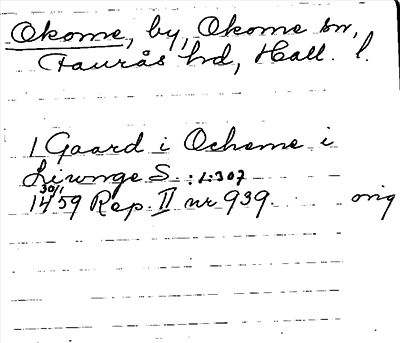 Okome, by, Okome sn,
Faurås hd, Hall. l.
1 Gaard i Ocheme i
Liwnge S. :1:307
30/1
1459 Rep. II nr 939. orig